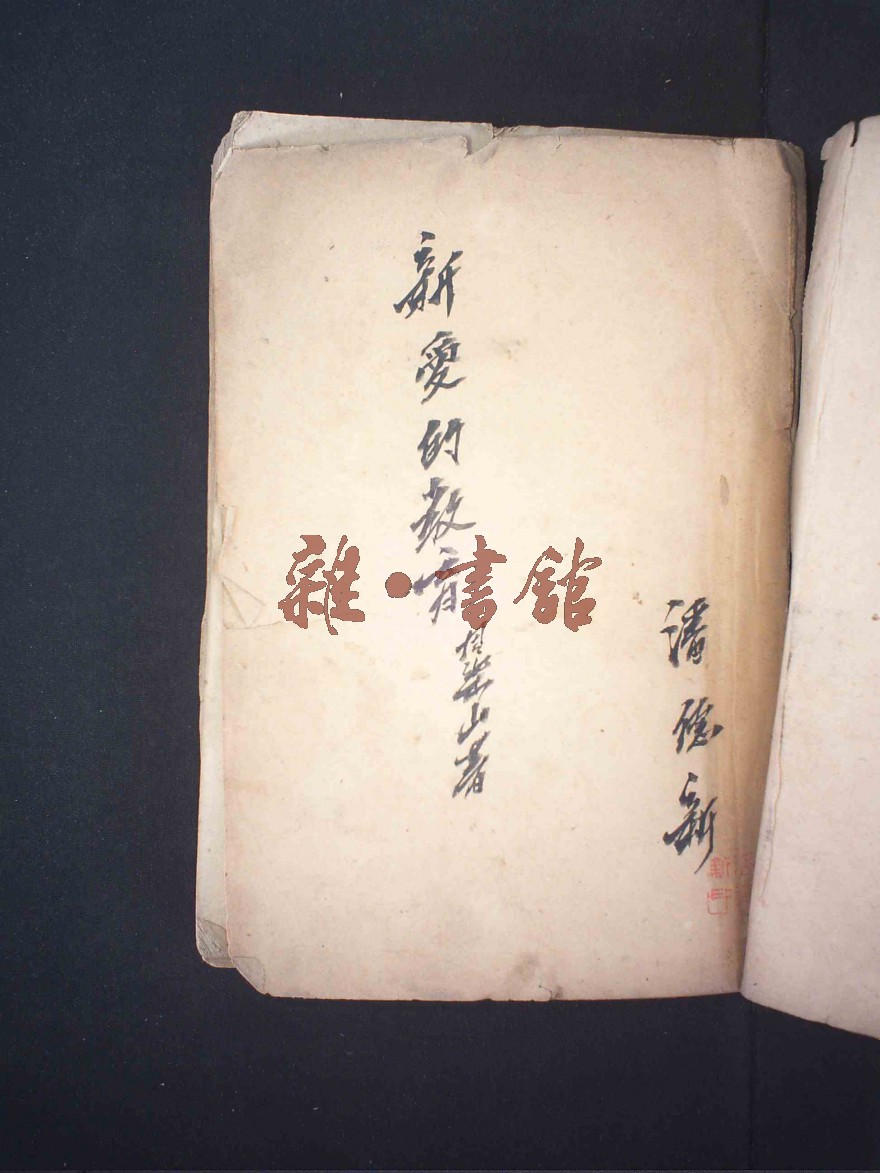 潘德新
新愛的教育
柯蓬山著
雜·書館